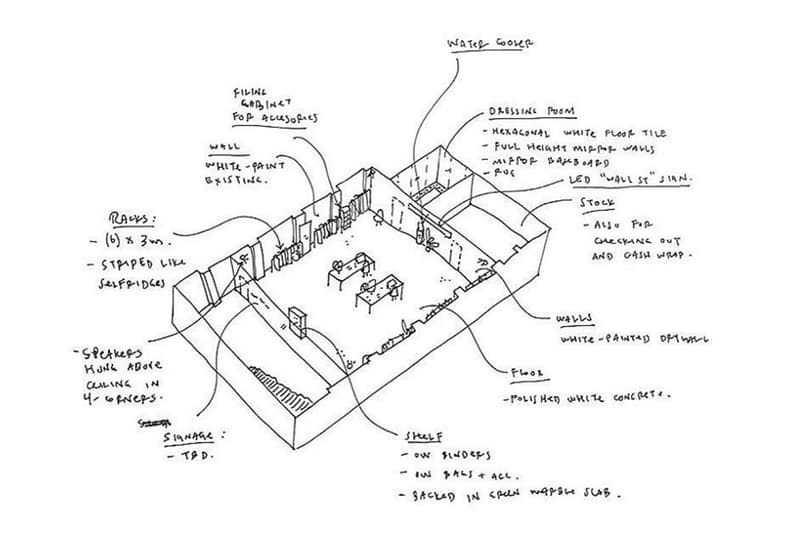 WATER COOLER
FILING
CABINET
FOR ACCESORIES
WALL
WHITE-PAINT
EXISTING.
RACKS:
- (6) x 3m.
- STRIPED LIKE
SELFRIDGES
- SPEAKERS
HUNG ABOVE
CEILING IN
4 CORNERS.
SIGNAGE:
- TBD.
DRESSING ROOM
- HEXAGONAL WHITE FLOOR TILE
- FULL HEIGHT MIRROR WALLS
- MIRROR
- RUG
LED "WALL ST" SIGN.
STOCK
- ALSO FOR
CHECKING OUT
AND CASH WRAP.
WALLS
WHITE-PAINTED DRYWALL
FLOOR
- POLISHED WHITE CONCRETE.
SHELF
- OW BINDERS
- OW BAGS + ACC.
- BACKED IN GREEN MARBLE SLAB.